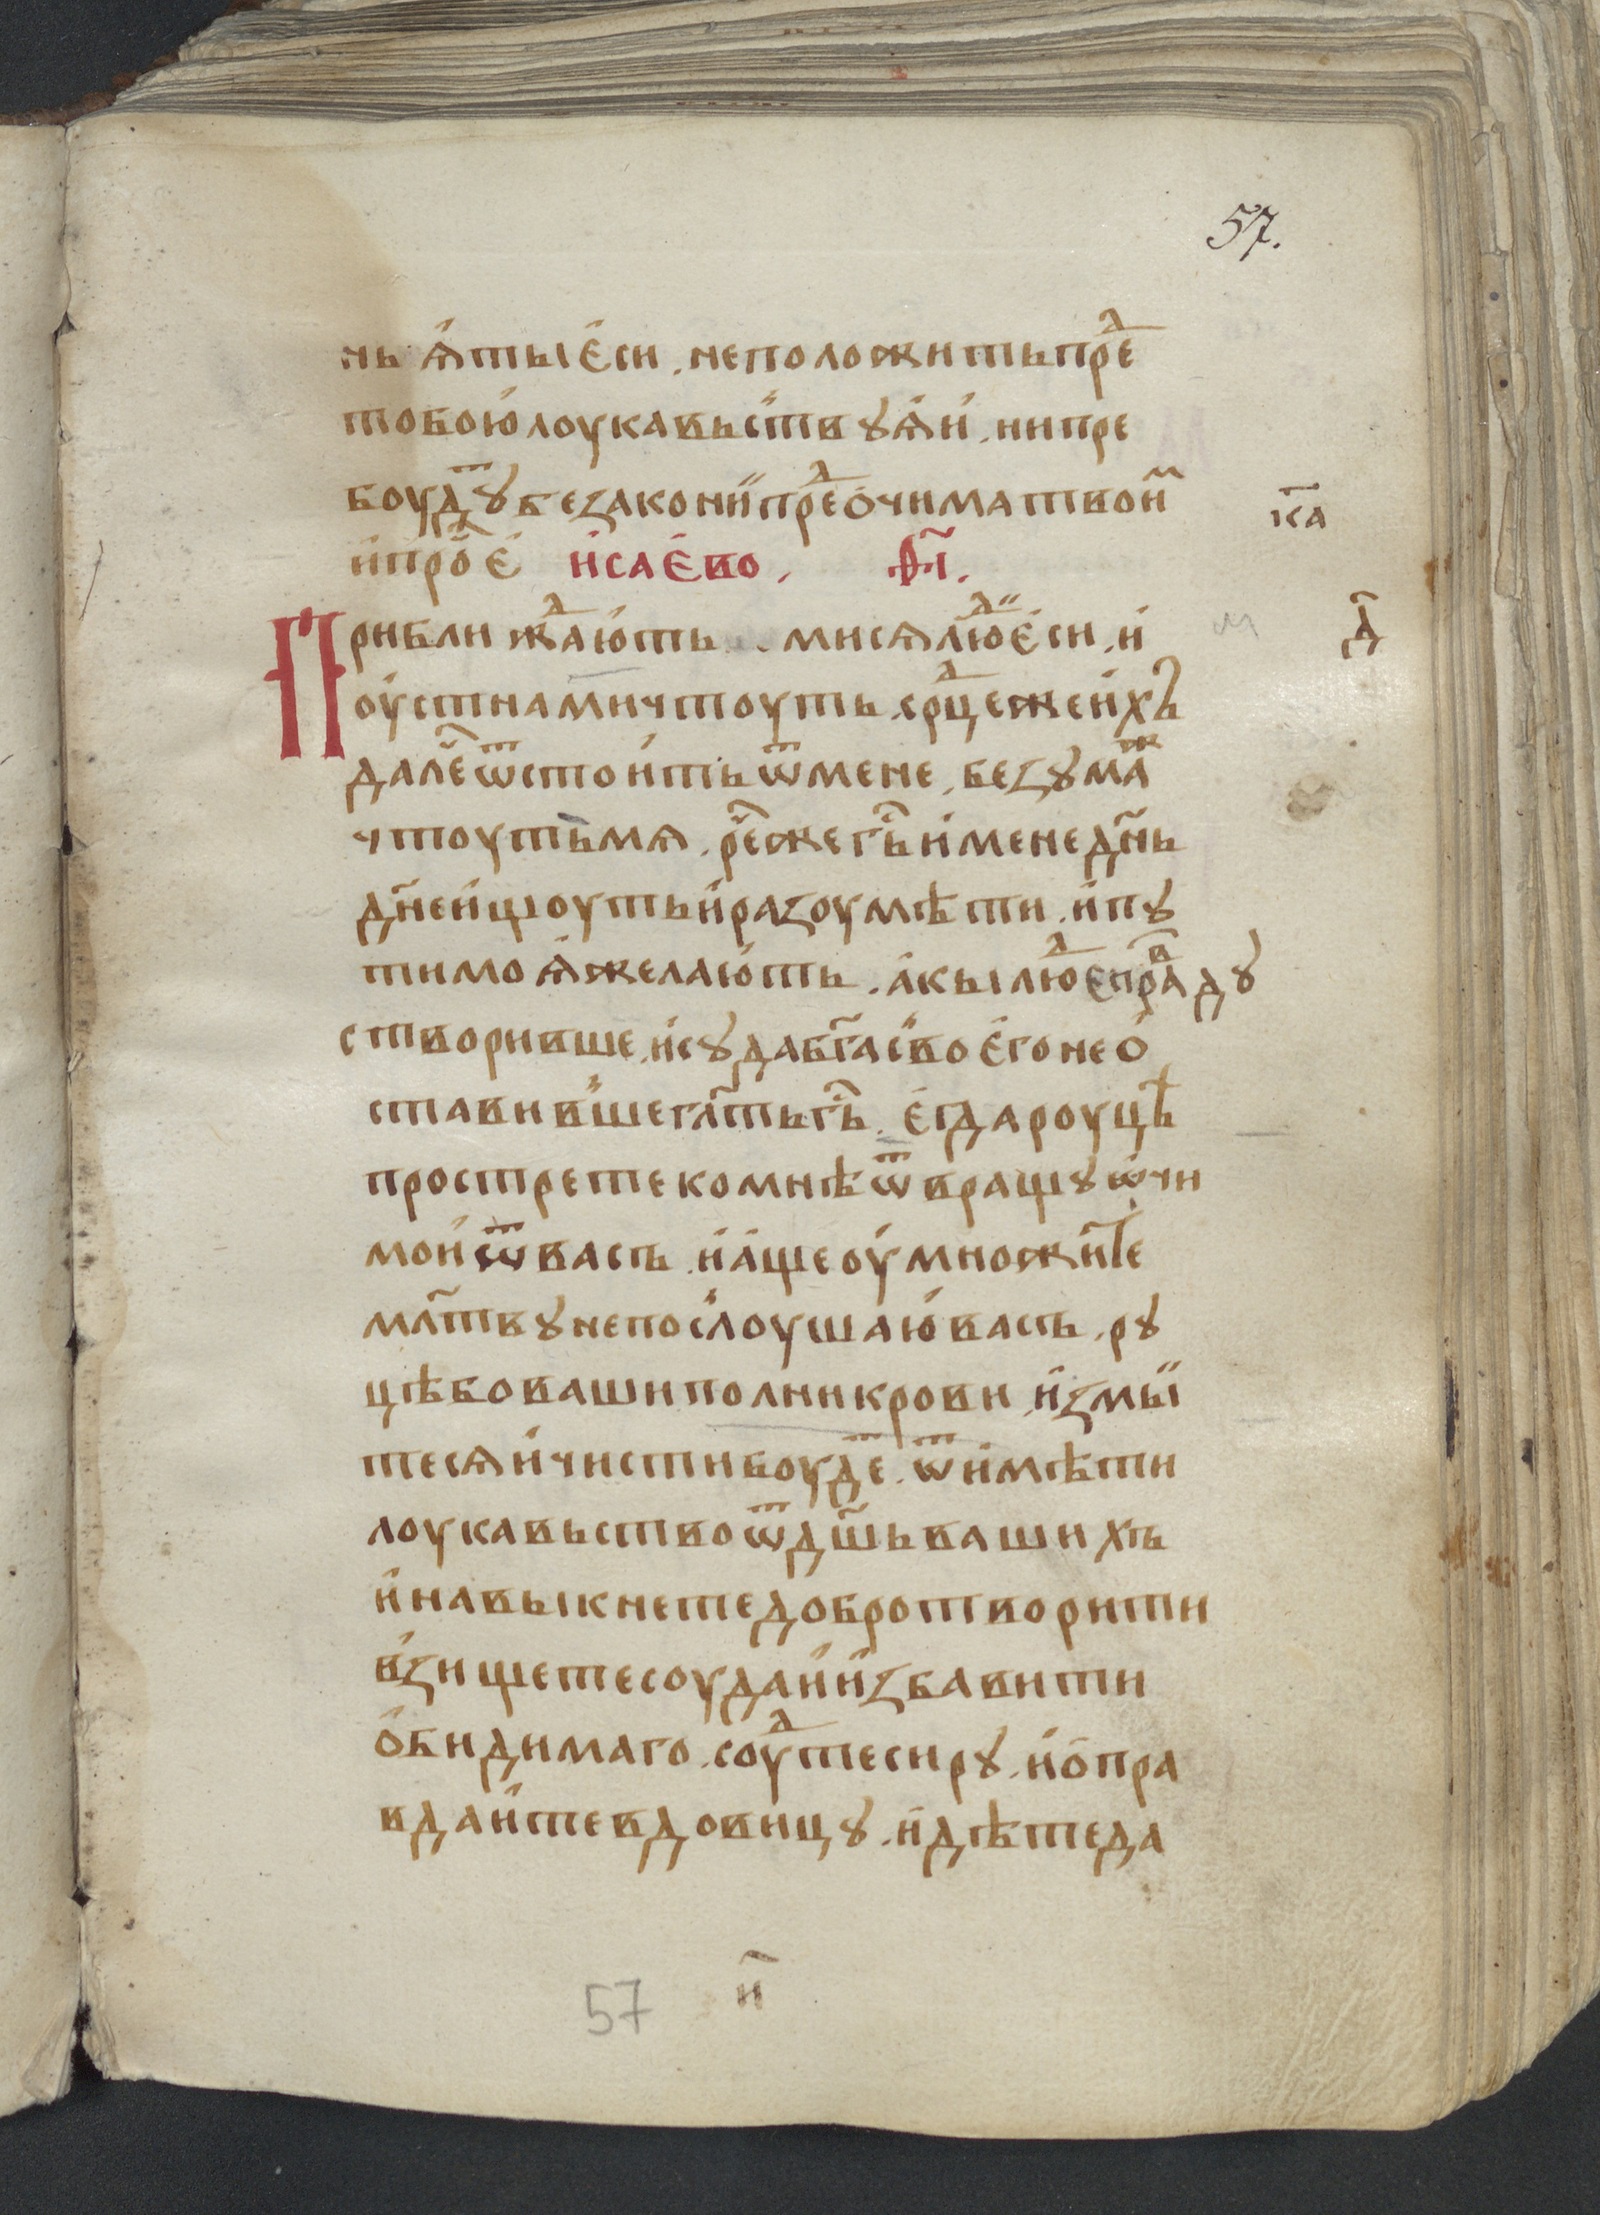 57.
нь ѧ҆ тыı є҆си . не положить прⷣе
тобою҆ лоукавьствꙋѧ҆и҆ . ни пре
боудⷮꙋ безакони҆и прⷣе ѻ҆чима твои҆ⷨ
к҃а
и҆ проⷱ҇є҆ и҆сає҆во . 
Приближⷣаю҆ть . ми сѧ лю҆ⷣє҆ си . и҆
д҃
оу҆стнами чтоуть . срⷣце же и҆хъ
далеⷱ҇ ѿстои҆ть ѿ мене . беꙁꙋмаⷤ
чтоуть мѧ . реⷱ҇ же гь҃ и҆мене дн҃ь
дн҃е и҆щоуть и҆ раꙁоумѣти . и҆ пꙋ
ти моѧ҆ желаю҆ть . а҆кыı люⷣє прⷡа дꙋ
створивше . и҆ сꙋда бг҃а сво є҆го не ѻ҆
ставивше гл҃ть гь҃ . є҆гда роуцѣ
прострете ко мнѣ ѿвращꙋ ѡ҆чи
мои҆ ѿ васъ . и҆ а҆ще оу҆множите
мл҃твꙋ не послоушаю҆ васъ . рꙋ
цѣ бо ваши полни крови . и҆ꙁмыı
тесѧ и҆ чисти боудⷮе . ѿи҆мѣти
лоукавьство ѿ дш҃ь вашихъ
и҆ навыıкнете добро творити
вꙁищете соуда и҆ и҆ꙁбавити
ѻ҆бидимаго . соуⷣте сирꙋ . и҆ ѻ҆пра
вдаи҆те вдовицꙋ . и҆ дѣте да
57 н҃